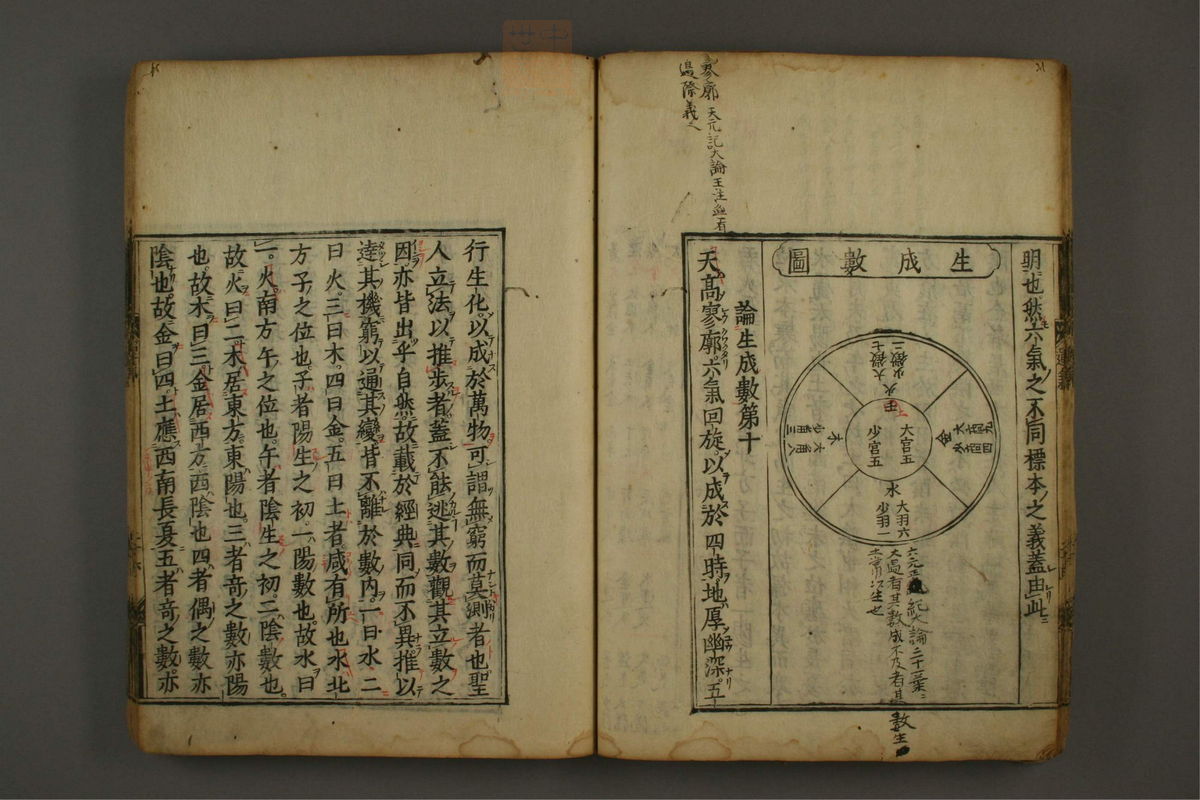 明也然六氣之不同標本之義蓋由此
生成數圖
火
大徵七
少徵二
木
大角八
少角三
土
大宮五
少宮五
金
大商九
少商四
水
大羽六
少羽一
論生成數第十
天高寥廓六氣回旋以成於四時地厚幽深五
行生化以成於萬物可謂無窮而莫測者也聖
人立法以推步者蓋不能逃其數觀其立數之
因亦皆出乎自然故載於經典同而不異推以
達其機窮以通其變皆不離於數內一曰水二
曰火三曰木四曰金五曰土者咸有所也水北
方子之位也子者陽生之初一陽數也故水曰
一火南方午之位也午者陰生之初二陰數也
故火曰二木居東方東陽也三者奇之數亦陽
也故木曰三金居西方西陰也四者偶之數亦
陰也故金曰四土應西南長夏五者奇之數亦
寥廓 天元記大論王注
邊際義
大過者其數成不及者其數生
土常以生也